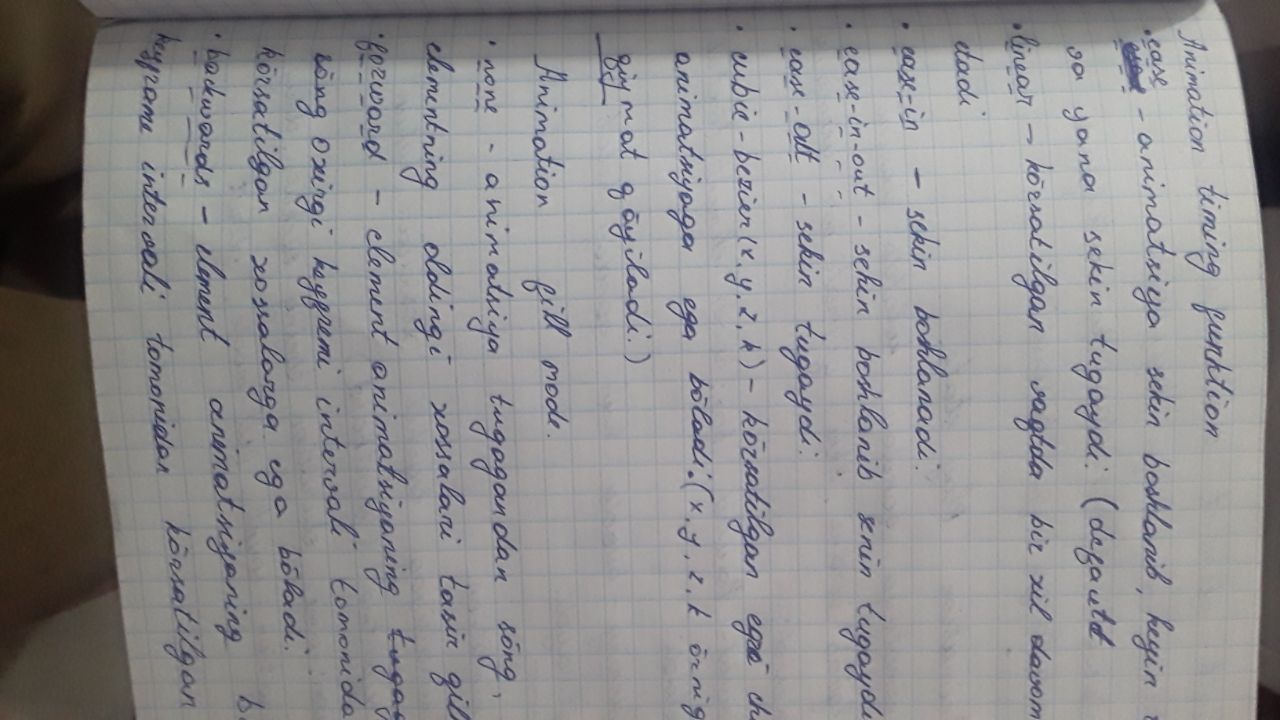 Animation timing funktion
• ease - animatsiya sekin boshlanib, keyin
ga yana sekin tugaydi. (defautt
• linear - körsatilgan vaqtda bir xil davom
etadi
• ease-in - sekin boshlanadi.
• ease-in-out - sekin boshlanib xnin tugaydi
• ease-out - sekin tugaydi.
• cubic-bezier(x, y, z, k) - körsatilgan egri
animatsiyaga ega böladi. (x, y, z, k örnig
qiymat qöyiladi.)
Animation fill mode.
• none - animatsiya tugagandan söng,
elementning oldingi xossalari tasir qil
• forward - element animatsiyaning tugag
söng oxirgi keyfremi interval tomonida
körsatilgan xossalarga ega böladi.
• backwards - element animatsiyaning
keyframe intervali tomonidan körsatilgan